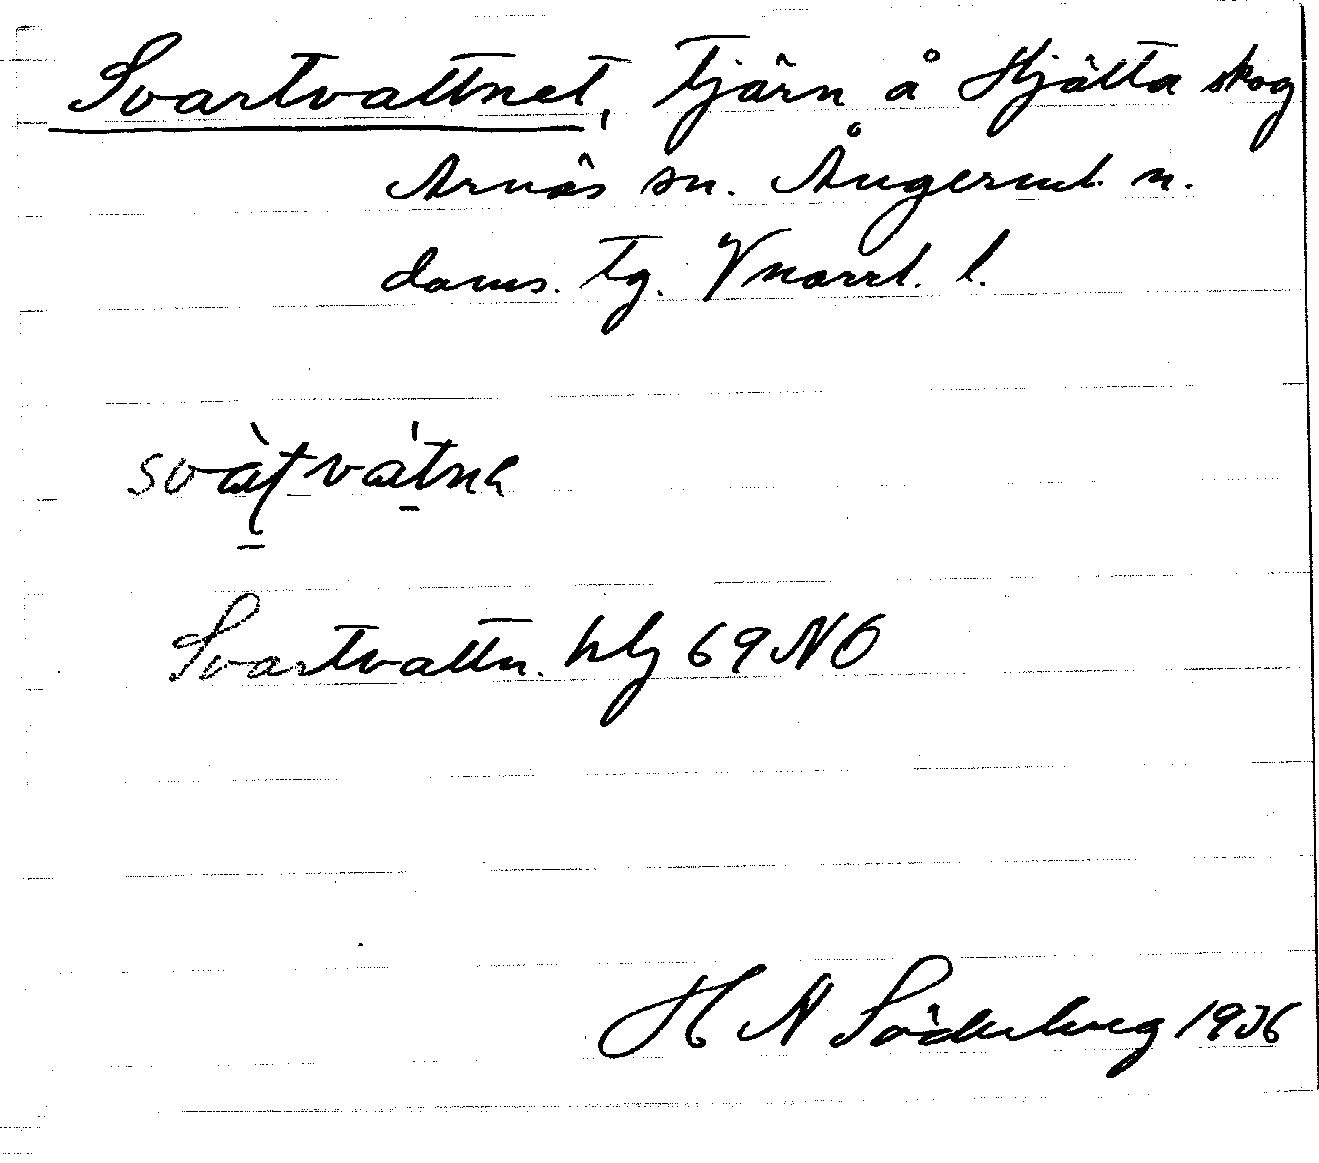 Svartvattnet, tjärn å Hjälta skog
Arnäs sn. Ångerml. n.
doms. tg. Vnorrl. l.
svàʈvátnɐ
Svartvattn. hlj 69 NO
H N Söderberg 1936